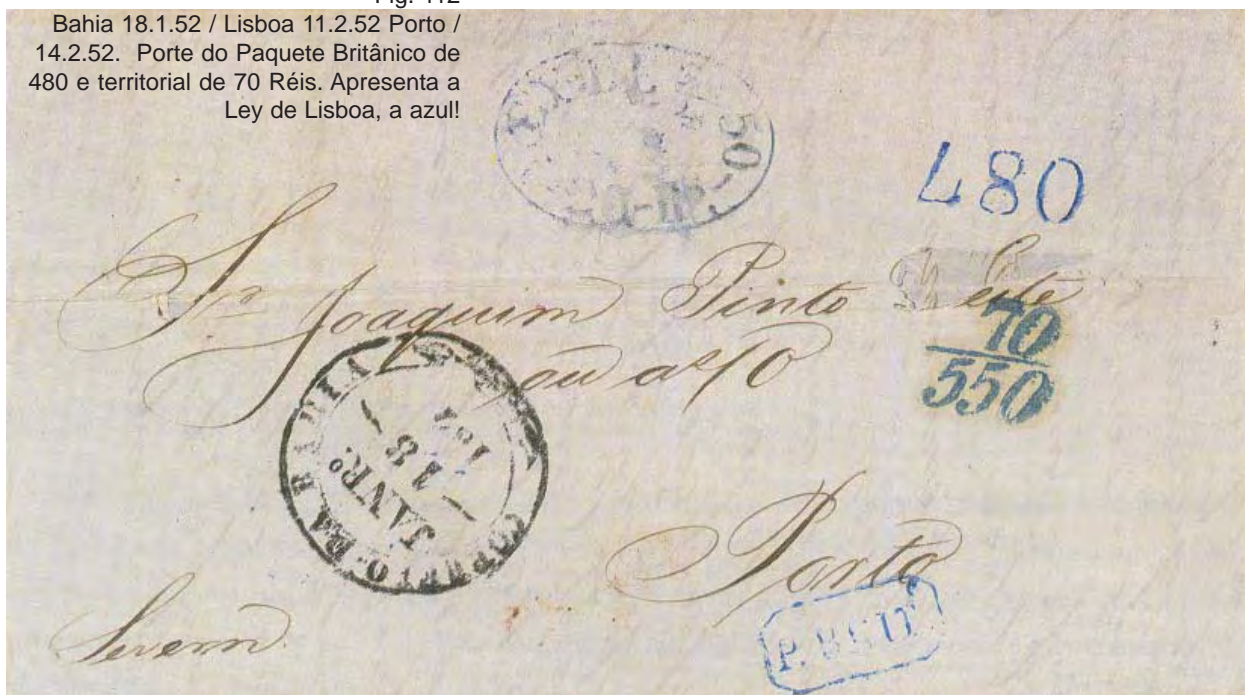 Bahia 18.1.52 / Lisboa 11.2.52 Porto /
14.2.52. Porte do Paquete Britânico de
480 e territorial de 70 Réis. Apresenta a
Ley de Lisboa, a azul!
50
480
Sr Joaquim Pinto Leite
70
550
DA BAHIA
JANRº
18
Porto
P. BRIT
Severn